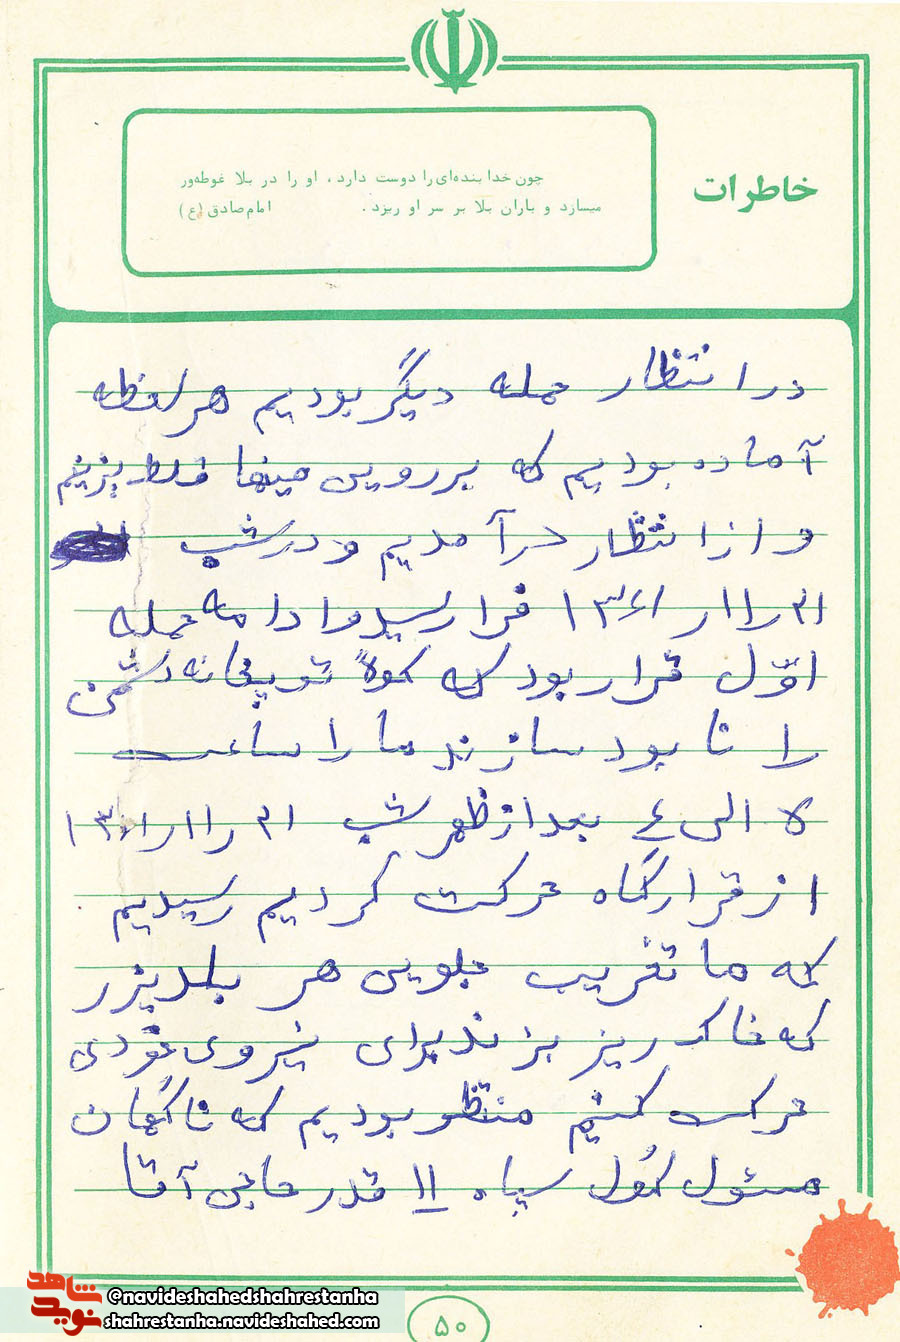 خاطرات
چون خدا بنده‌ای را دوست دارد، او را در بلا غوطه‌ور
میسازد و باران بلا بر سر او ریزد. امام صادق (ع)
در انتظار حمله دیگر بودیم هر لحظه
آماده بودیم که بر رویی مینها غلط بزنیم
و از انتظار درآمدیم و در شب
۲۱ ر۱۱ر ۱۳۶۱ فرا رسید و ادامه حمله
اوّل قرار بود که کوهٔ توپخانه دشمن
را نابود سازند ما را ساعت
۵ الی ۴ بعد از ظهر شب ۲۱ ر۱۱ر۱۳۶۱
از قرارگاه حرکت کردیم رسیدیم
که ما تقریب جلویی هر بلدیزر
که خاکریز بزند برای نیروی خودی
حرکت کنیم منتظر بودیم که ناگهان
مسئول کُول سپاه ۱۱ قدر حاجی آقا
۵۰
شاهد
نوید
@navideshahedshahrestanha
shahrestanha.navideshahed.com